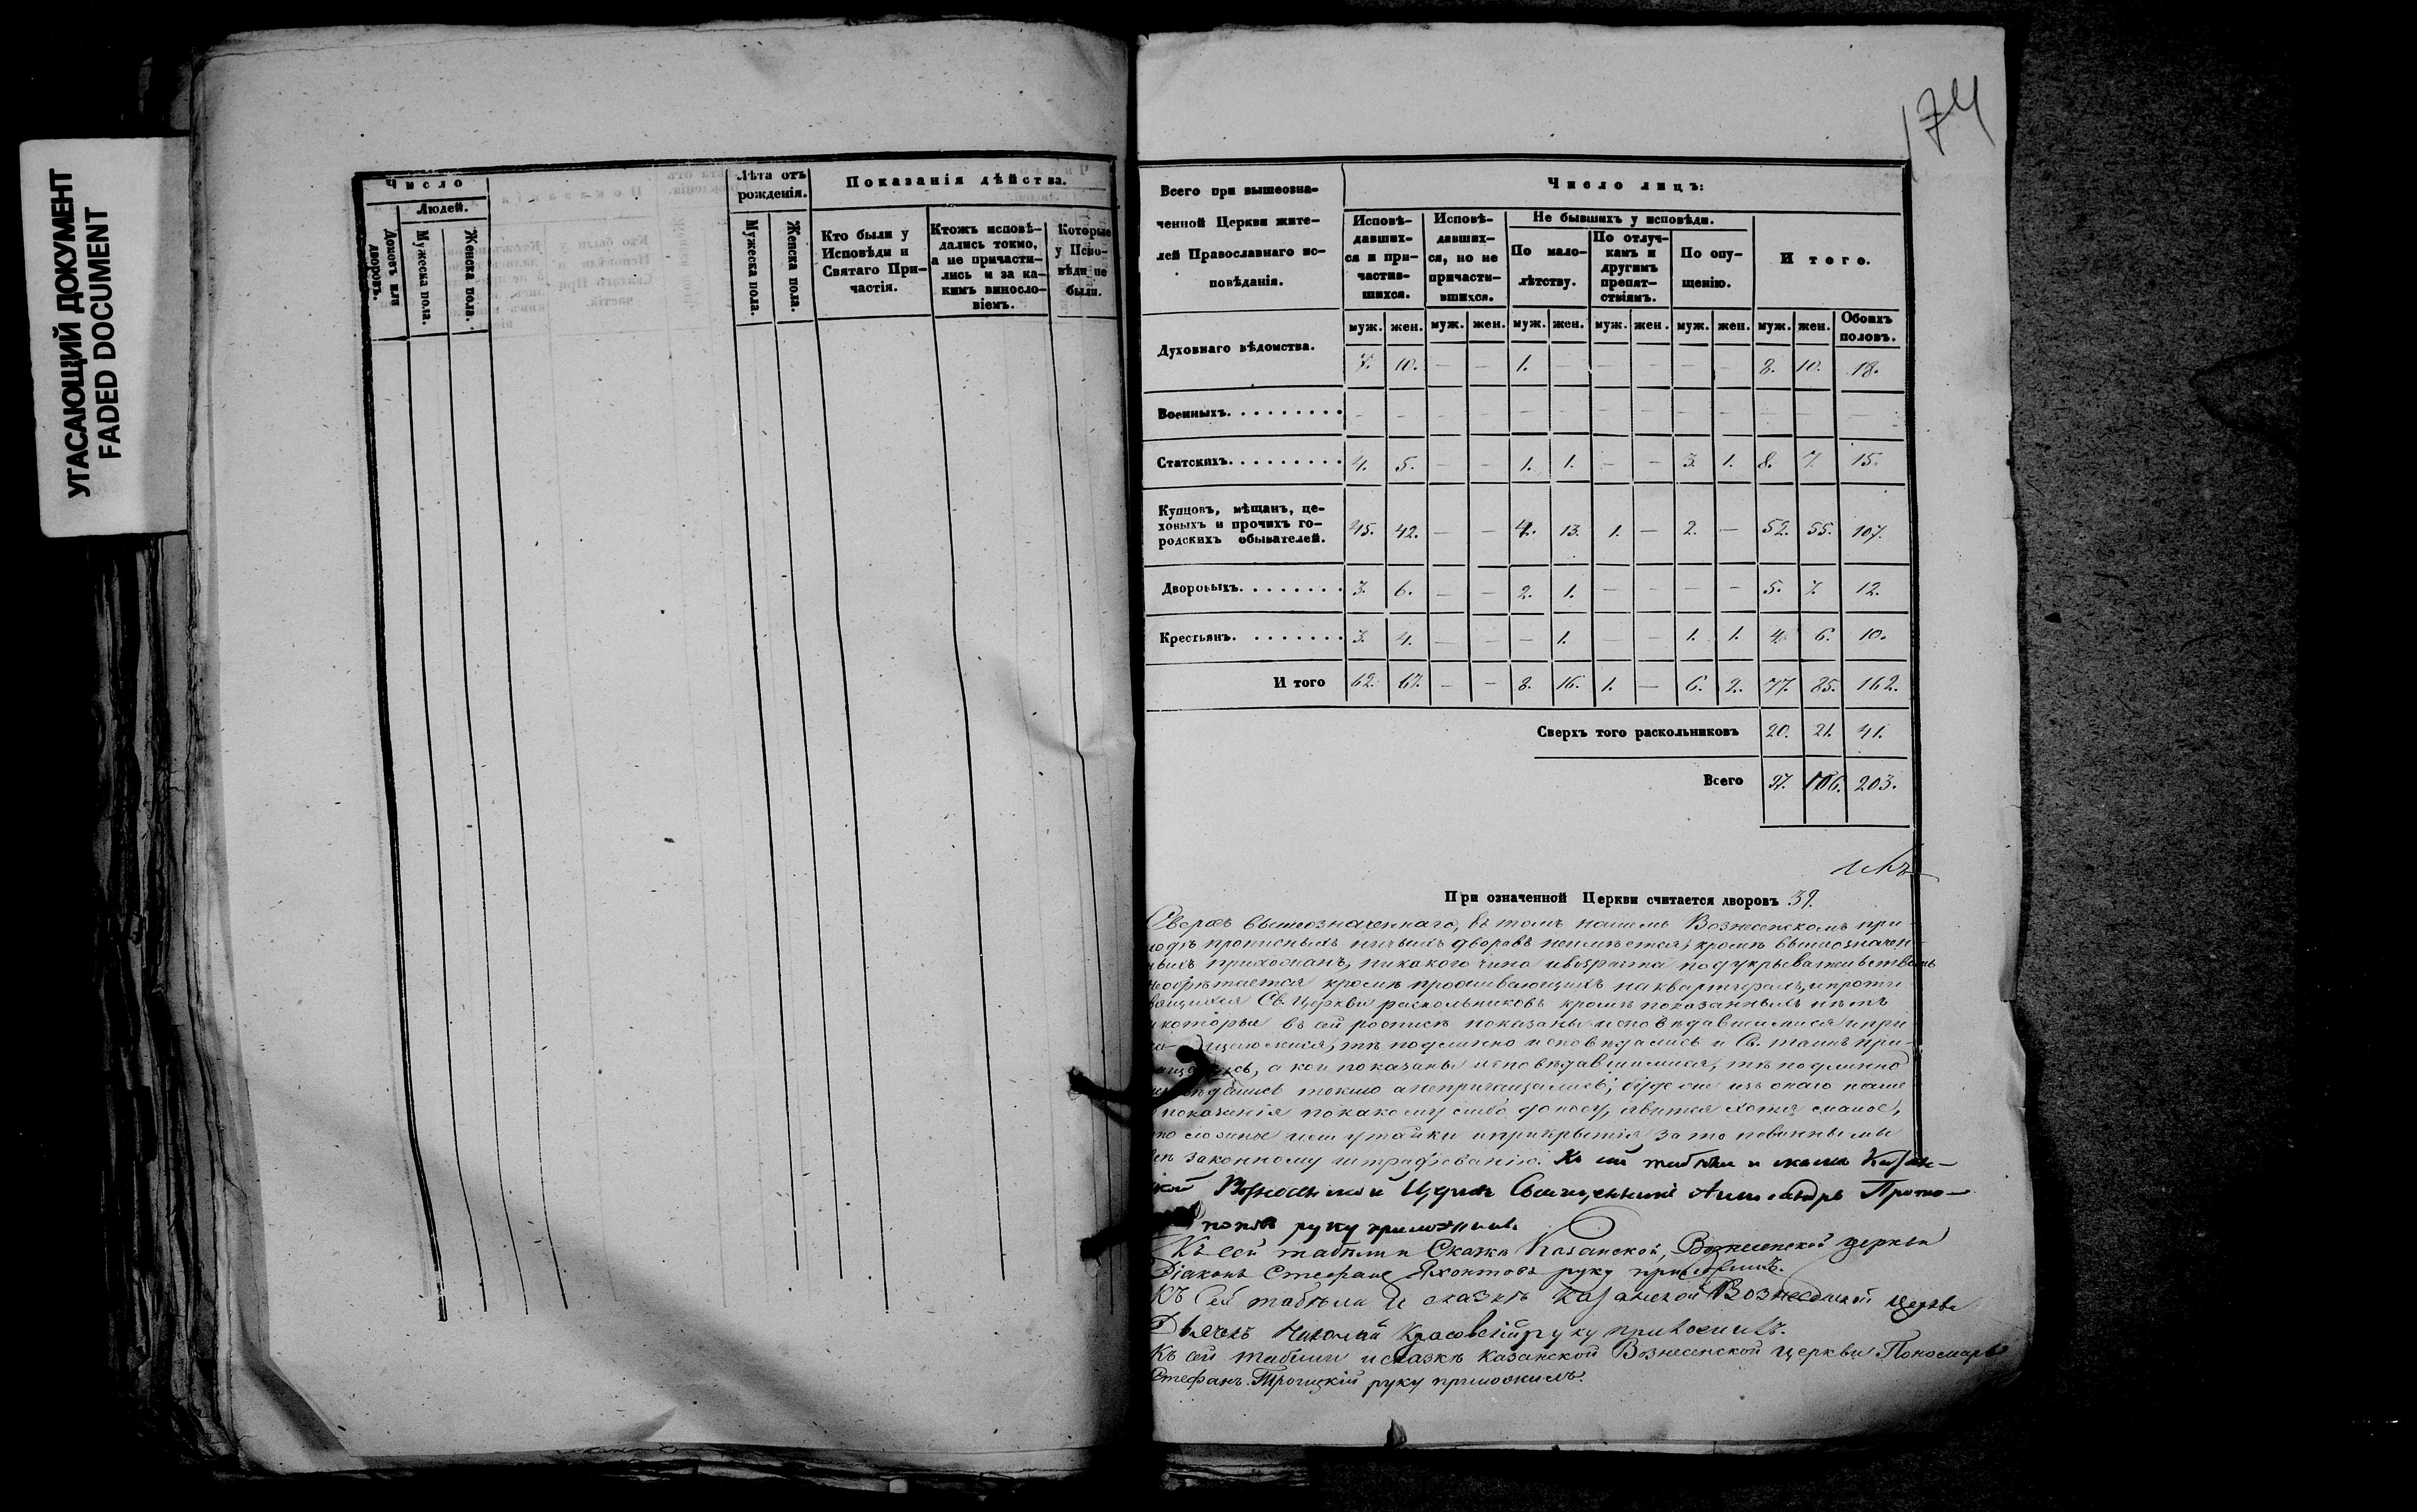 УГАСАЮЩИЙ ДОКУМЕНТ
FADED DOCUMENT
Число
Людей.
Домовъ или дворовъ.
Мужеска пола.
Женска пола.
Лѣта отъ рожденія.
Мужеска пола.
Женска пола.
Показанія дѣйства.
Кто были у Исповѣди и Святаго Причастія.
Ктожъ исповѣдались токмо, а не причастились и за какимъ винословіемъ.
Которые у Исповѣди не были.
174
Всего при вышеозначенной Церкви жителей Православнаго исповѣданія.
Число лицъ:
Исповѣдавшихся и причастившихся.
Исповѣдавшихся, но не причастившихся.
Не бывшихъ у исповѣди.
По малолѣтству.
По отлучкамъ и другимъ препятствіямъ.
По опущенію.
Итого.
муж. жен. муж. жен. муж. жен. муж. жен. муж. жен. муж. жен. Обоихъ половъ.
Духовнаго вѣдомства. 7. 10. — — 1. — — — — — 8. 10. 18.
Военныхъ. — — — — — — — — — — — — —
Статскихъ. 4. 5. — — 1. 1. — — 3. 1. 8. 7. 15.
Купцовъ, мѣщанъ, цеховыхъ и прочихъ городскихъ обывателей. 45. 42. — — 4. 13. 1. — 2. — 52. 55. 107.
Дворовыхъ. 3. 6. — — 2. 1. — — — — 5. 7. 12.
Крестьянъ. 3. 4. — — — 1. — — 1. 1. 4. 6. 10.
И того 62. 67. — — 8. 16. 1. — 6. 2. 77. 85. 162.
Сверхъ того раскольниковъ 20. 21. 41.
Всего 97. 106. 203.
При означенной Церкви считается дворовъ 39.
Сверхъ вышеозначеннаго, въ томъ нашемъ Вознесенскомъ при-
ходѣ прописныхъ ничьихъ дворовъ неимѣется, кромѣ вышеозначен-
ныхъ прихожанъ, никакого чина ивозраста подукрывательствомъ
необрѣтается кромѣ проживающихъ наквартирахъ, ипроти
вящихся Св. Церкви раскольниковъ кромѣ показанныхъ нѣтъ
и которые въ сей росписи показаны исповѣдавшимися ипри
тѣ подлинно исповѣдались и Св. таинъ при-
а кои показаны исповѣдавшимися, тѣ подлинно
токмо анепричащались; буде же изъ онаго наше
показанія покакому либо доносу, явится хотя малое,
что ложное или утайки иприкрытія, зато повинны мы
законному штрафованію. Къ сей табели и сказкѣ Казан-
ской Вознесенской Церкви Священникъ Александръ Прото-
поповъ руку приложилъ.
Къ сей табели и Сказкѣ Казанской, Вознесенской церкви
Діаконъ Стефанъ Яхонтовъ руку приложилъ.
Къ Сей табели и сказкѣ Казанской Вознесенской церкви
Дьячекъ Николай Красовскій руку приложилъ.
Къ сей табели и сказкѣ Казанской Вознесенской церкви Пономарь
Стефанъ Троицкій руку приложилъ.